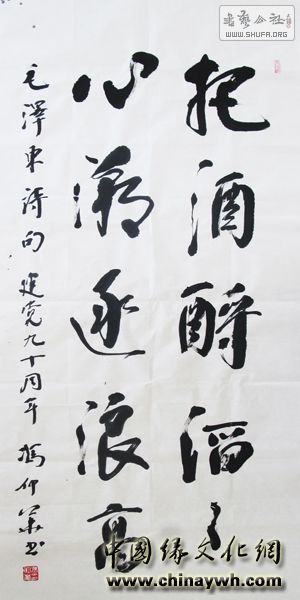 書藝公社
WWW.SHUFA.ORG
把酒酹滔々
心潮逐浪高
毛澤東詩句 建党九十周年 仲 书
中國緣文化網
www.chinaywh.com